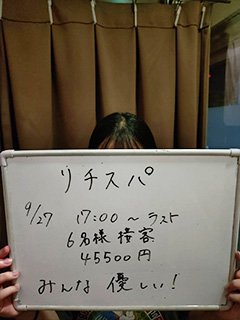 リチスパ
9/27 17:00～ラスト
6名様 接客
45500円
みんな 優しい!